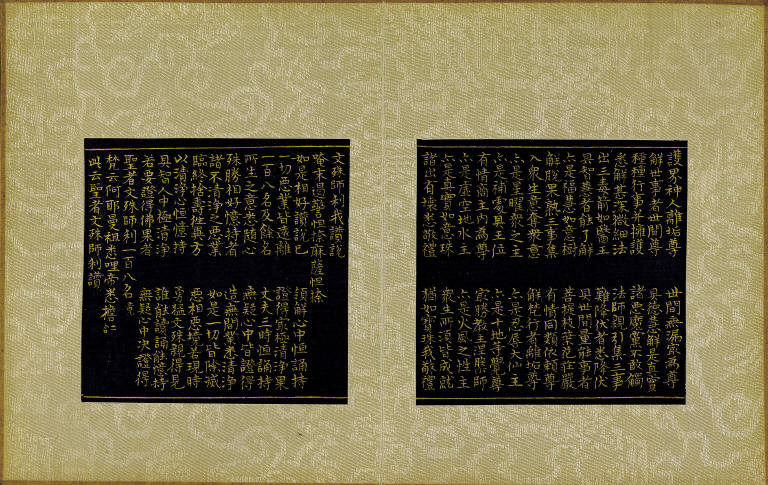 護界神人離垢尊　世間無漏最為尊
解世事者世間尊　具德急解是真實
種種行事并擁護　諸惡魔黨不敢觸
悉解甚深微細法　法師親引集三事
出三毒箭如醫王　難降伏者悉降伏
具知善者能了解　具世間重解事者
亦是福慧如意樹　菩提枝葉花莊嚴
解脫果熟三事集　有情同類依賴尊
入眾生意奪眾意　解梵行者離垢尊
亦是星曜眾之主　亦是忍辱大仙主
亦是補處具主位　亦是十地等覺尊
有情商主內為尊　最勝教主涅槃師
亦是虛空地水主　亦是火風之性主
亦是真實如意珠　眾生所須皆成就
諸出有壞悉敬禮　猶如寶珠我敬禮
文殊師利我讚說
唵末遏怛捺麻薩怛捺
如是相好讚說已　頂解心中恒誦持
一切惡業皆遠離　證得最極清淨果
一百八名及餘名　丈夫三時恒誦持
所生之意悉隨心　無疑心中皆證得
殊勝相好憶持者　造無間業悉清淨
諸不清淨之惡業　如是一切皆除滅
臨終捨壽往異方　惡相惡境若現時
以清淨心恒憶持　勇猛文殊親得見
具智人中極清淨　誰讀誦能憶持
若要證得佛果者　無疑心中次證得
聖者文殊師利一百八名竟
梵云阿耶曼祖悉哩帝悉檐
此云聖者文殊師利讚